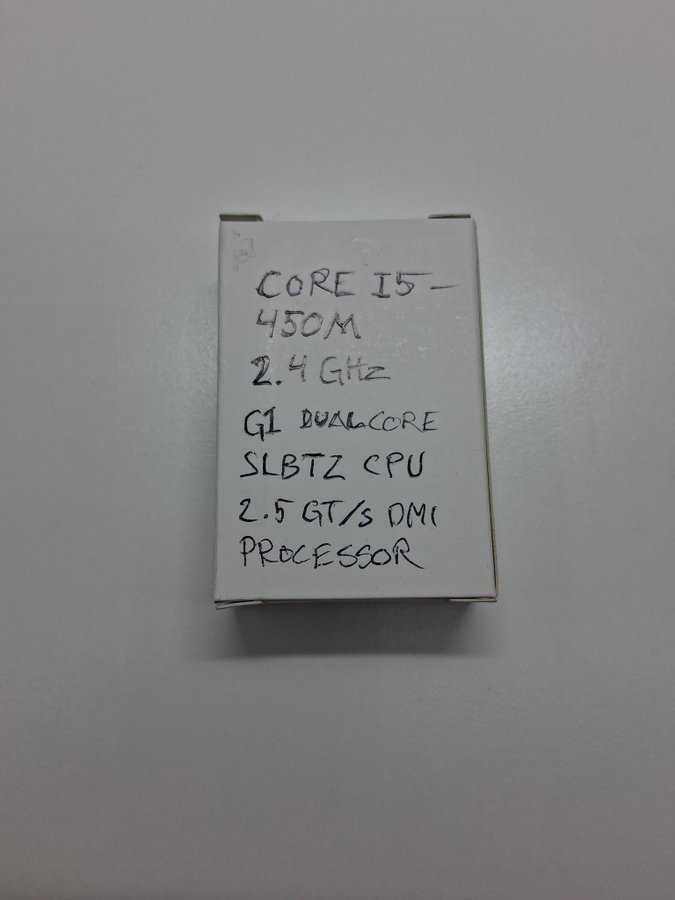 CORE I5-
450M
2.4 GHz
G1 DUALCORE
SLBTZ CPU
2.5 GT/s DMI
PROCESSOR